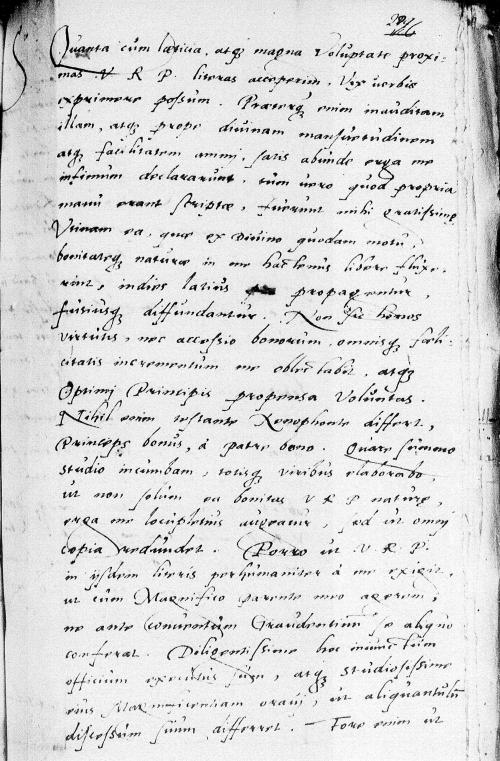 Quanta cum lætitia, atq; magna voluptate proxi-
mas V. R. P. literas acceperim, vix verbis
exprimere possum. Præterq; enim inauditam
illam, atq; prope diuinam mansuetudinem
atq; facilitatem animj, satis abunde erga me
infimum declararunt, tum uero quod propria
manu erant scriptæ, fuerunt mihi gratissimę
Vtinam ea, quæ ex Diuino quodam motu,
bonitateq; naturæ in me hactenus libere fluxe-
rint, indies latius propagentur,
fusiusq; diffundantur. Non sic honos
virtutis, nec accessio bonorum, omnisq; fœli-
citatis incrementum me oblectabit, atq;
Optimj Principis propensa Voluntas.
Nihil enim testante Xenophonte differt,
Princeps bonus, à patre bono. Quare summo
studio incumbam, totisq; viribus elaborabo,
ut non solum ea bonitas V R P naturæ,
erga me locupletius augeatur, sed ut omnj
copia redundet. Porro ut V. R. P.
in ijsdem literis perhumaniter à me exigit,
ut cum Magnifico parente meo agerem,
ne ante Conuentum Graudentinum se aliquo
conferat. Diligentissime hoc iniunctum
officium executus sum, atq; studiosissime
eius Magnificentiam oraui, ut aliquantulum
discessum suum differret. Fore enim ut